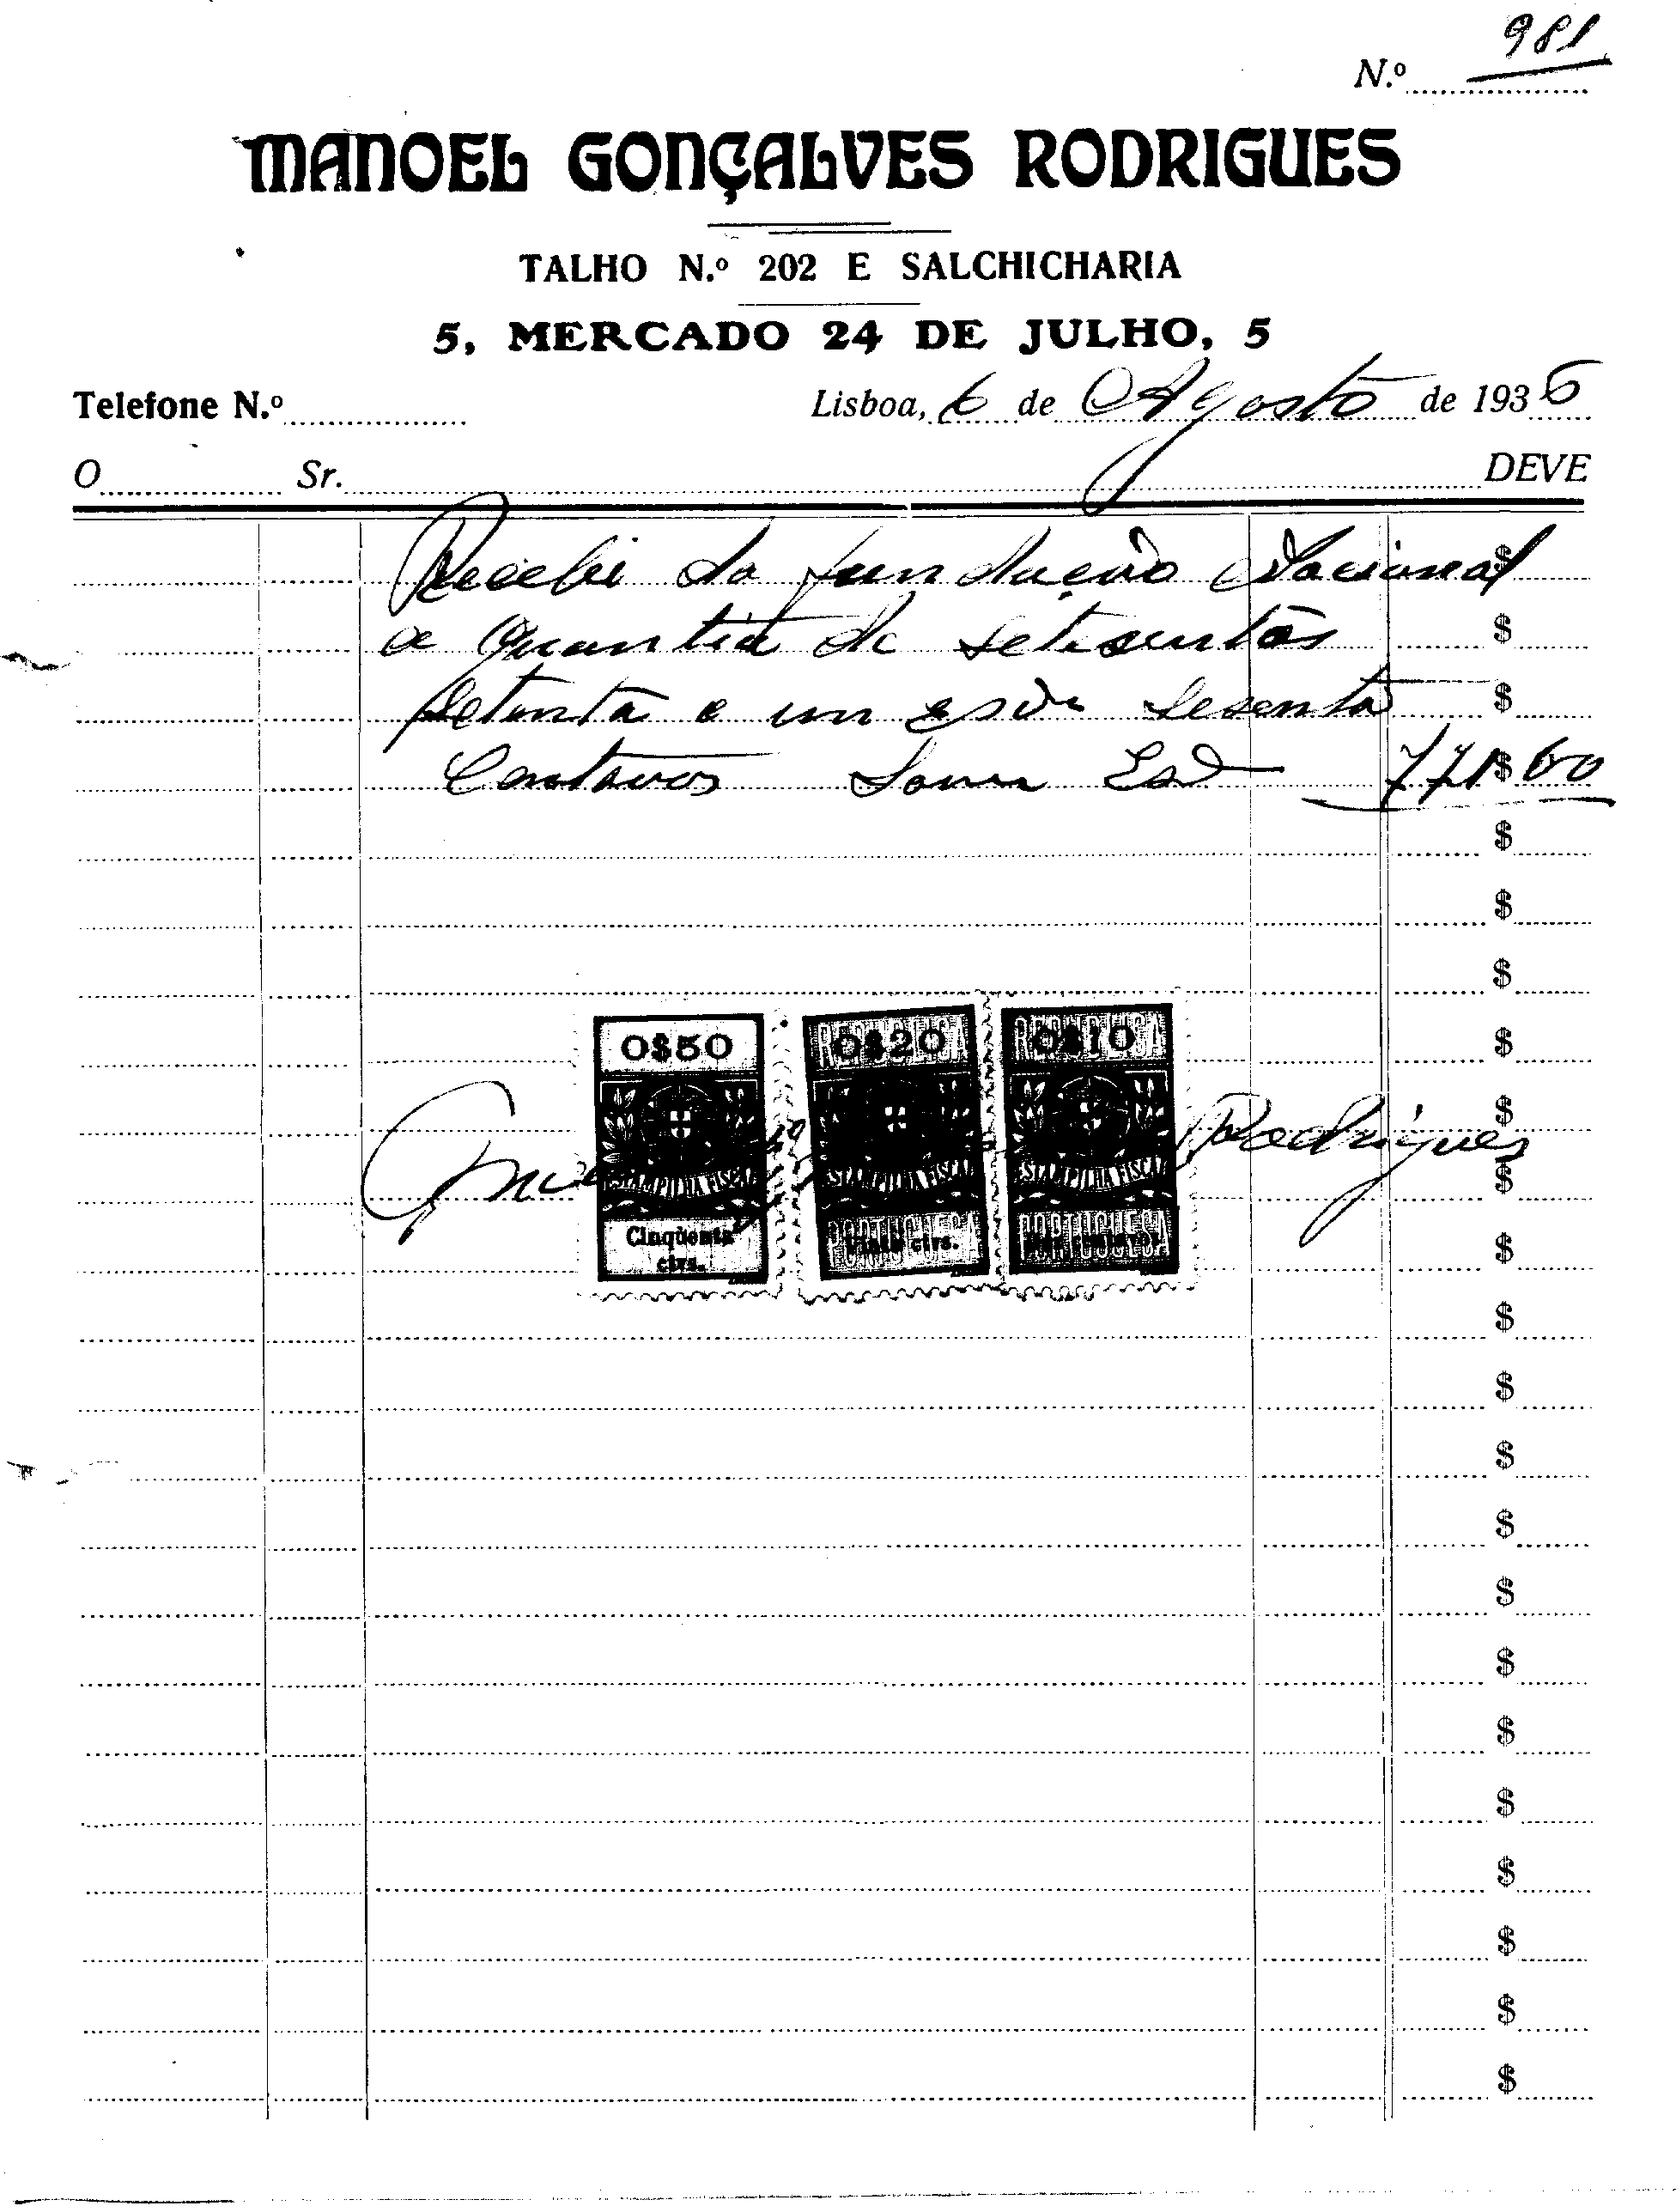 981
N.º
MANOEL GONÇALVES RODRIGUES
TALHO N.º 202 E SALCHICHARIA
5, MERCADO 24 DE JULHO, 5
Telefone N.º Lisboa, 6 de Agosto de 1936
O Sr. DEVE
Recebi da Fundação Nacional $
a quantia de setesentos $
setenta e um esdº sesenta $
Centavos Som Esd 771$60
$
$
$
0$50 0$20 0$10 $
Rodrigues $
ESTAMPILHA FISCAL ESTAMPILHA FISCAL ESTAMPILHA FISCAL $
Cinqüenta ctvs. PORTUGUESA Vinte ctvs. PORTUGUESA Dez centavos $
$
$
$
$
$
$
$
$
$
$
$
$